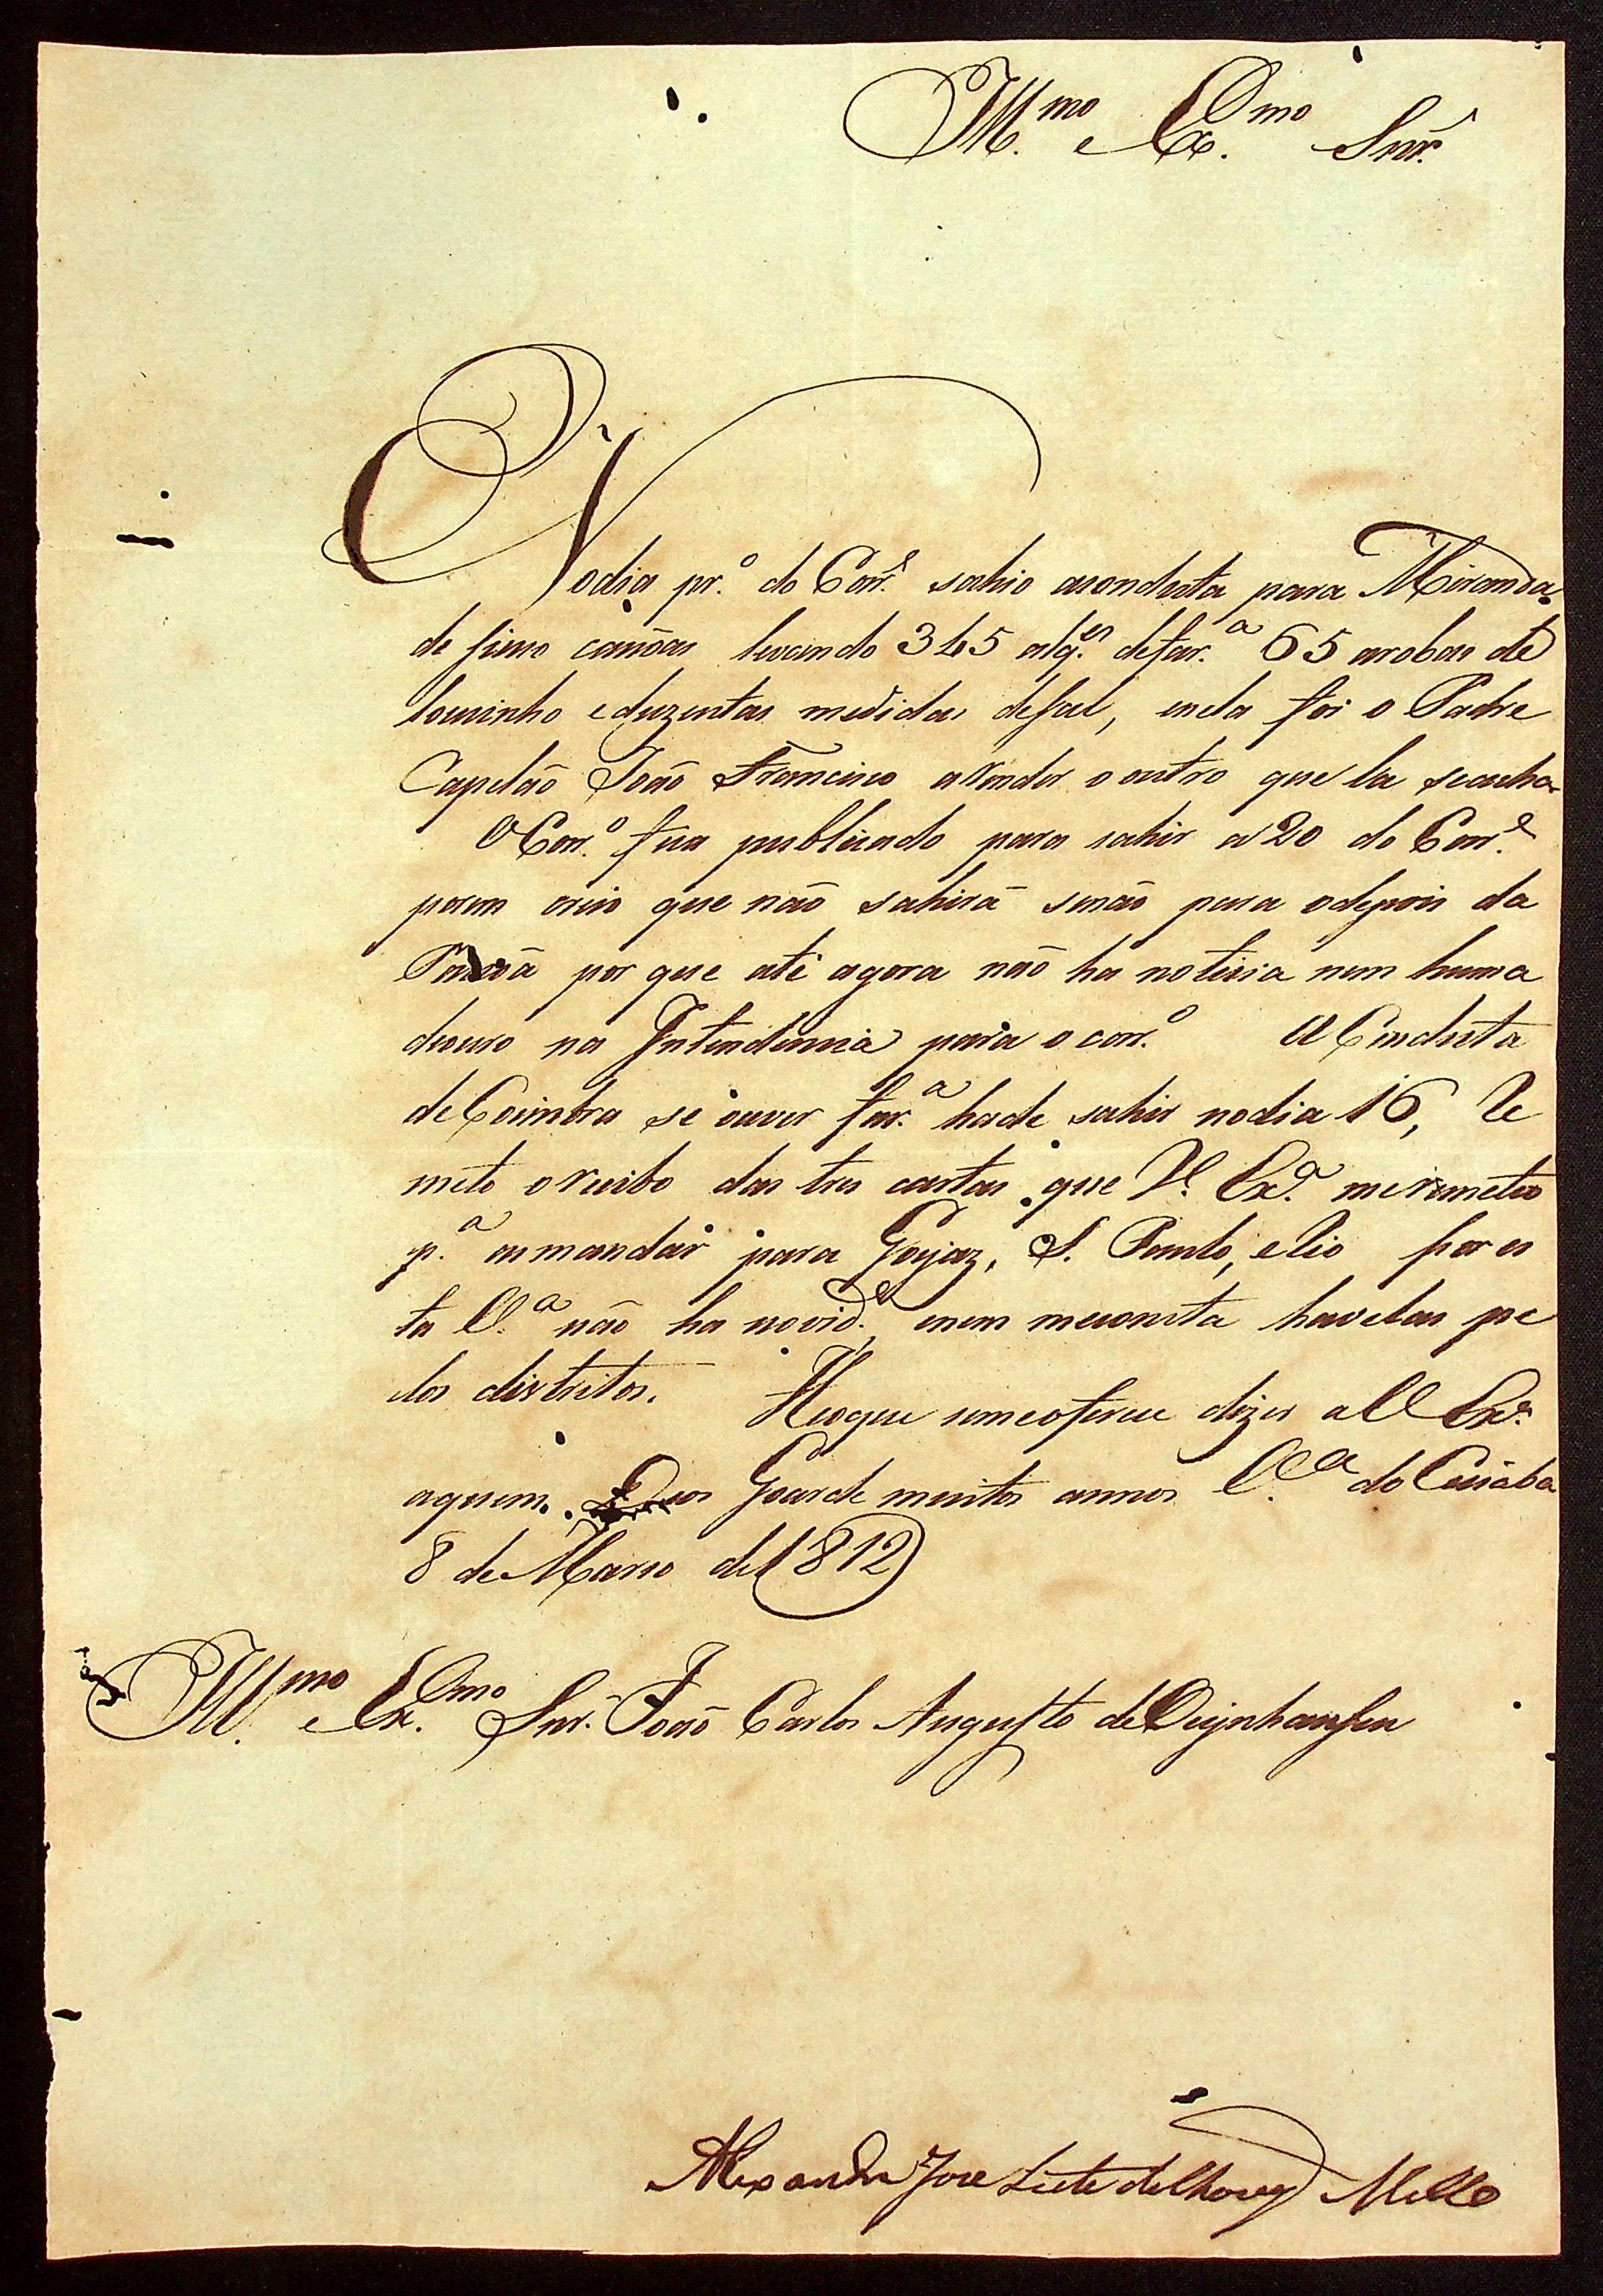 Ill.mo e Ex.mo Snr.
No dia pr.o do Corr.e sahio aconduta para Miranda
de sinco canôas levando 345 alq.es defar.a 65 arobas de
toucinho eduzentas medidas desal, enela foi o Padre
Capelão João Francisco arender o outro que la seacha
O Corr.o fica publicado para sahir a 20 do Corr.e
porem creio que não sahirâ senão para odepois da
Pascoâ por que atê agora não ha noticia nem huma
deouro na Intendencia para o corr.o A Conduta
deCoimbra se ouver far.a hade sahir nodia 16, Re
meto orecibo das tres cartas que V. Ex.a meremeteo
p.a asmandar para Goyaz, S. Paulo, eRio por es
ta V.a não ha novid.e, enem meconsta havelas pe
los distritos. Heoque semeoferece dizer a V Ex.a
aquem Deos Goarde muitos annos V.a do Cuiaba
8 de Marso de 1812
Ill.mo e Ex.mo Snr. João Carlos Augusto deOeynhausen
Alexandre Jose Leite deChaves Mello